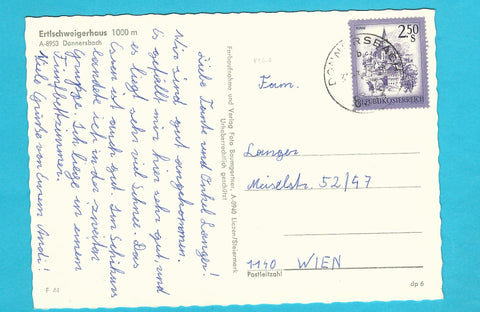 Ertlschweigerhaus 1000 m
A-8953 Donnersbach
Liebe Tante und Onkel Langer!
Wir sind gut angekommen.
Es gefällt mir hier sehr gut und
es liegt sehr viel Schnee. Das
Essen ist auch gut. Im Schikurs
landete ich in der zweiten
Gruppe. Ich liege in einem
Fünfbettzimmer.
Viele Grüße von Eurem Andi!
Farbaufnahme und Verlag Foto Baumgartner, A-8940 Liezen/Steiermark
Urheberrechtlich geschützt
2.50
S
REPUBLIK ÖSTERREICH
DONNERSBACH
Fam.
Langer
Meiselstr. 52/47
1140 WIEN
Postleitzahl
dp 6